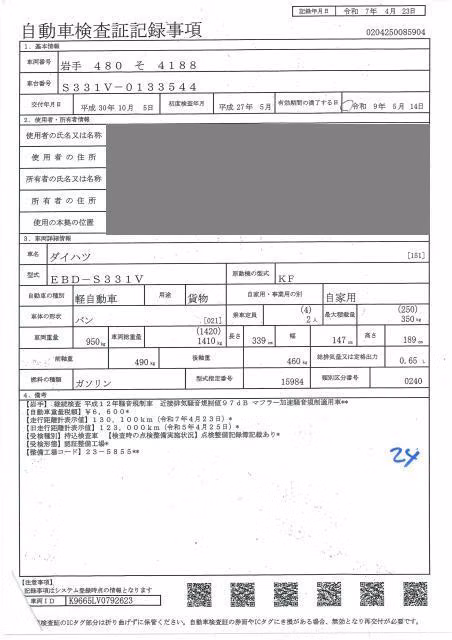 記録年月日 令和 7年 4月 23日
自動車検査証記録事項 0204250085904
1. 基本情報
車両番号 岩手 480 そ 4188
車台番号 S331V-0133544
交付年月日 平成 30年 10月 5日 初度検査年月 平成 27年 5月 有効期間の満了する日 令和 9年 5月 14日
2. 使用者・所有者情報
使用者の氏名又は名称
使用者の住所
所有者の氏名又は名称
所有者の住所
使用の本拠の位置
3. 車両詳細情報
車名 ダイハツ [151]
型式 EBD-S331V 原動機の型式 KF
自動車の種別 軽自動車 用途 貨物 自家用・事業用の別 自家用
車体の形状 バン [021] 乗車定員 (4) 2人 最大積載量 (250) 350kg
車両重量 950kg 車両総重量 (1420) 1410kg 長さ 339cm 幅 147cm 高さ 189cm
前軸重 490kg 後軸重 460kg 総排気量又は定格出力 0.65 L
燃料の種類 ガソリン 型式指定番号 15984 類別区分番号 0240
4. 備考
【岩手】,継続検査 平成12年騒音規制車 近接排気騒音規制値97dB マフラー加速騒音規制適用車**
【自動車重量税額】¥6,600*
【走行距離計表示値】130,100km(令和7年4月23日)*
【旧走行距離計表示値】123,000km(令和5年4月25日)*
【受検種別】持込検査車 【検査時の点検整備実施状況】点検整備記録簿記載あり*
【受検形態】認証整備工場*
【整備工場コード】23-5855**
24
【注意事項】
記録事項はシステム登録時点の情報となります
車両ID K9665LV0792623
検査証のICタグ部分は折り曲げずに保管ください。自動車検査証の券面やICタグにき損がある場合、無効となり再交付が必要です。